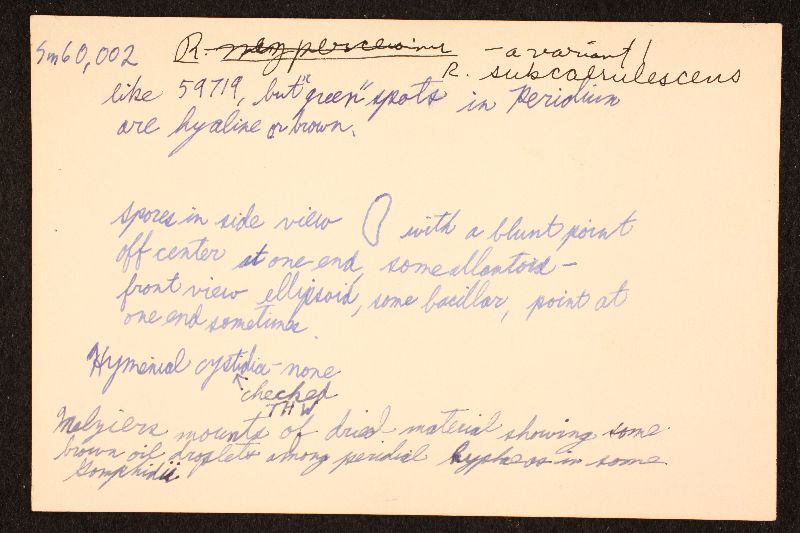 Sm60,002 R. - a variant!
R. subcaerulescens
like 59719, but "green" spots in Peridium
are hyaline or brown.
spores in side view with a blunt point
off center at one end, some allantoid –
front view ellipsoid, some bacillar, point at
one end sometimes
Hymenial cystidia – none
checked
THW
Melzers mounts of dried material showing some
brown oil droplets among peridial hyphae as in some
Gomphidii